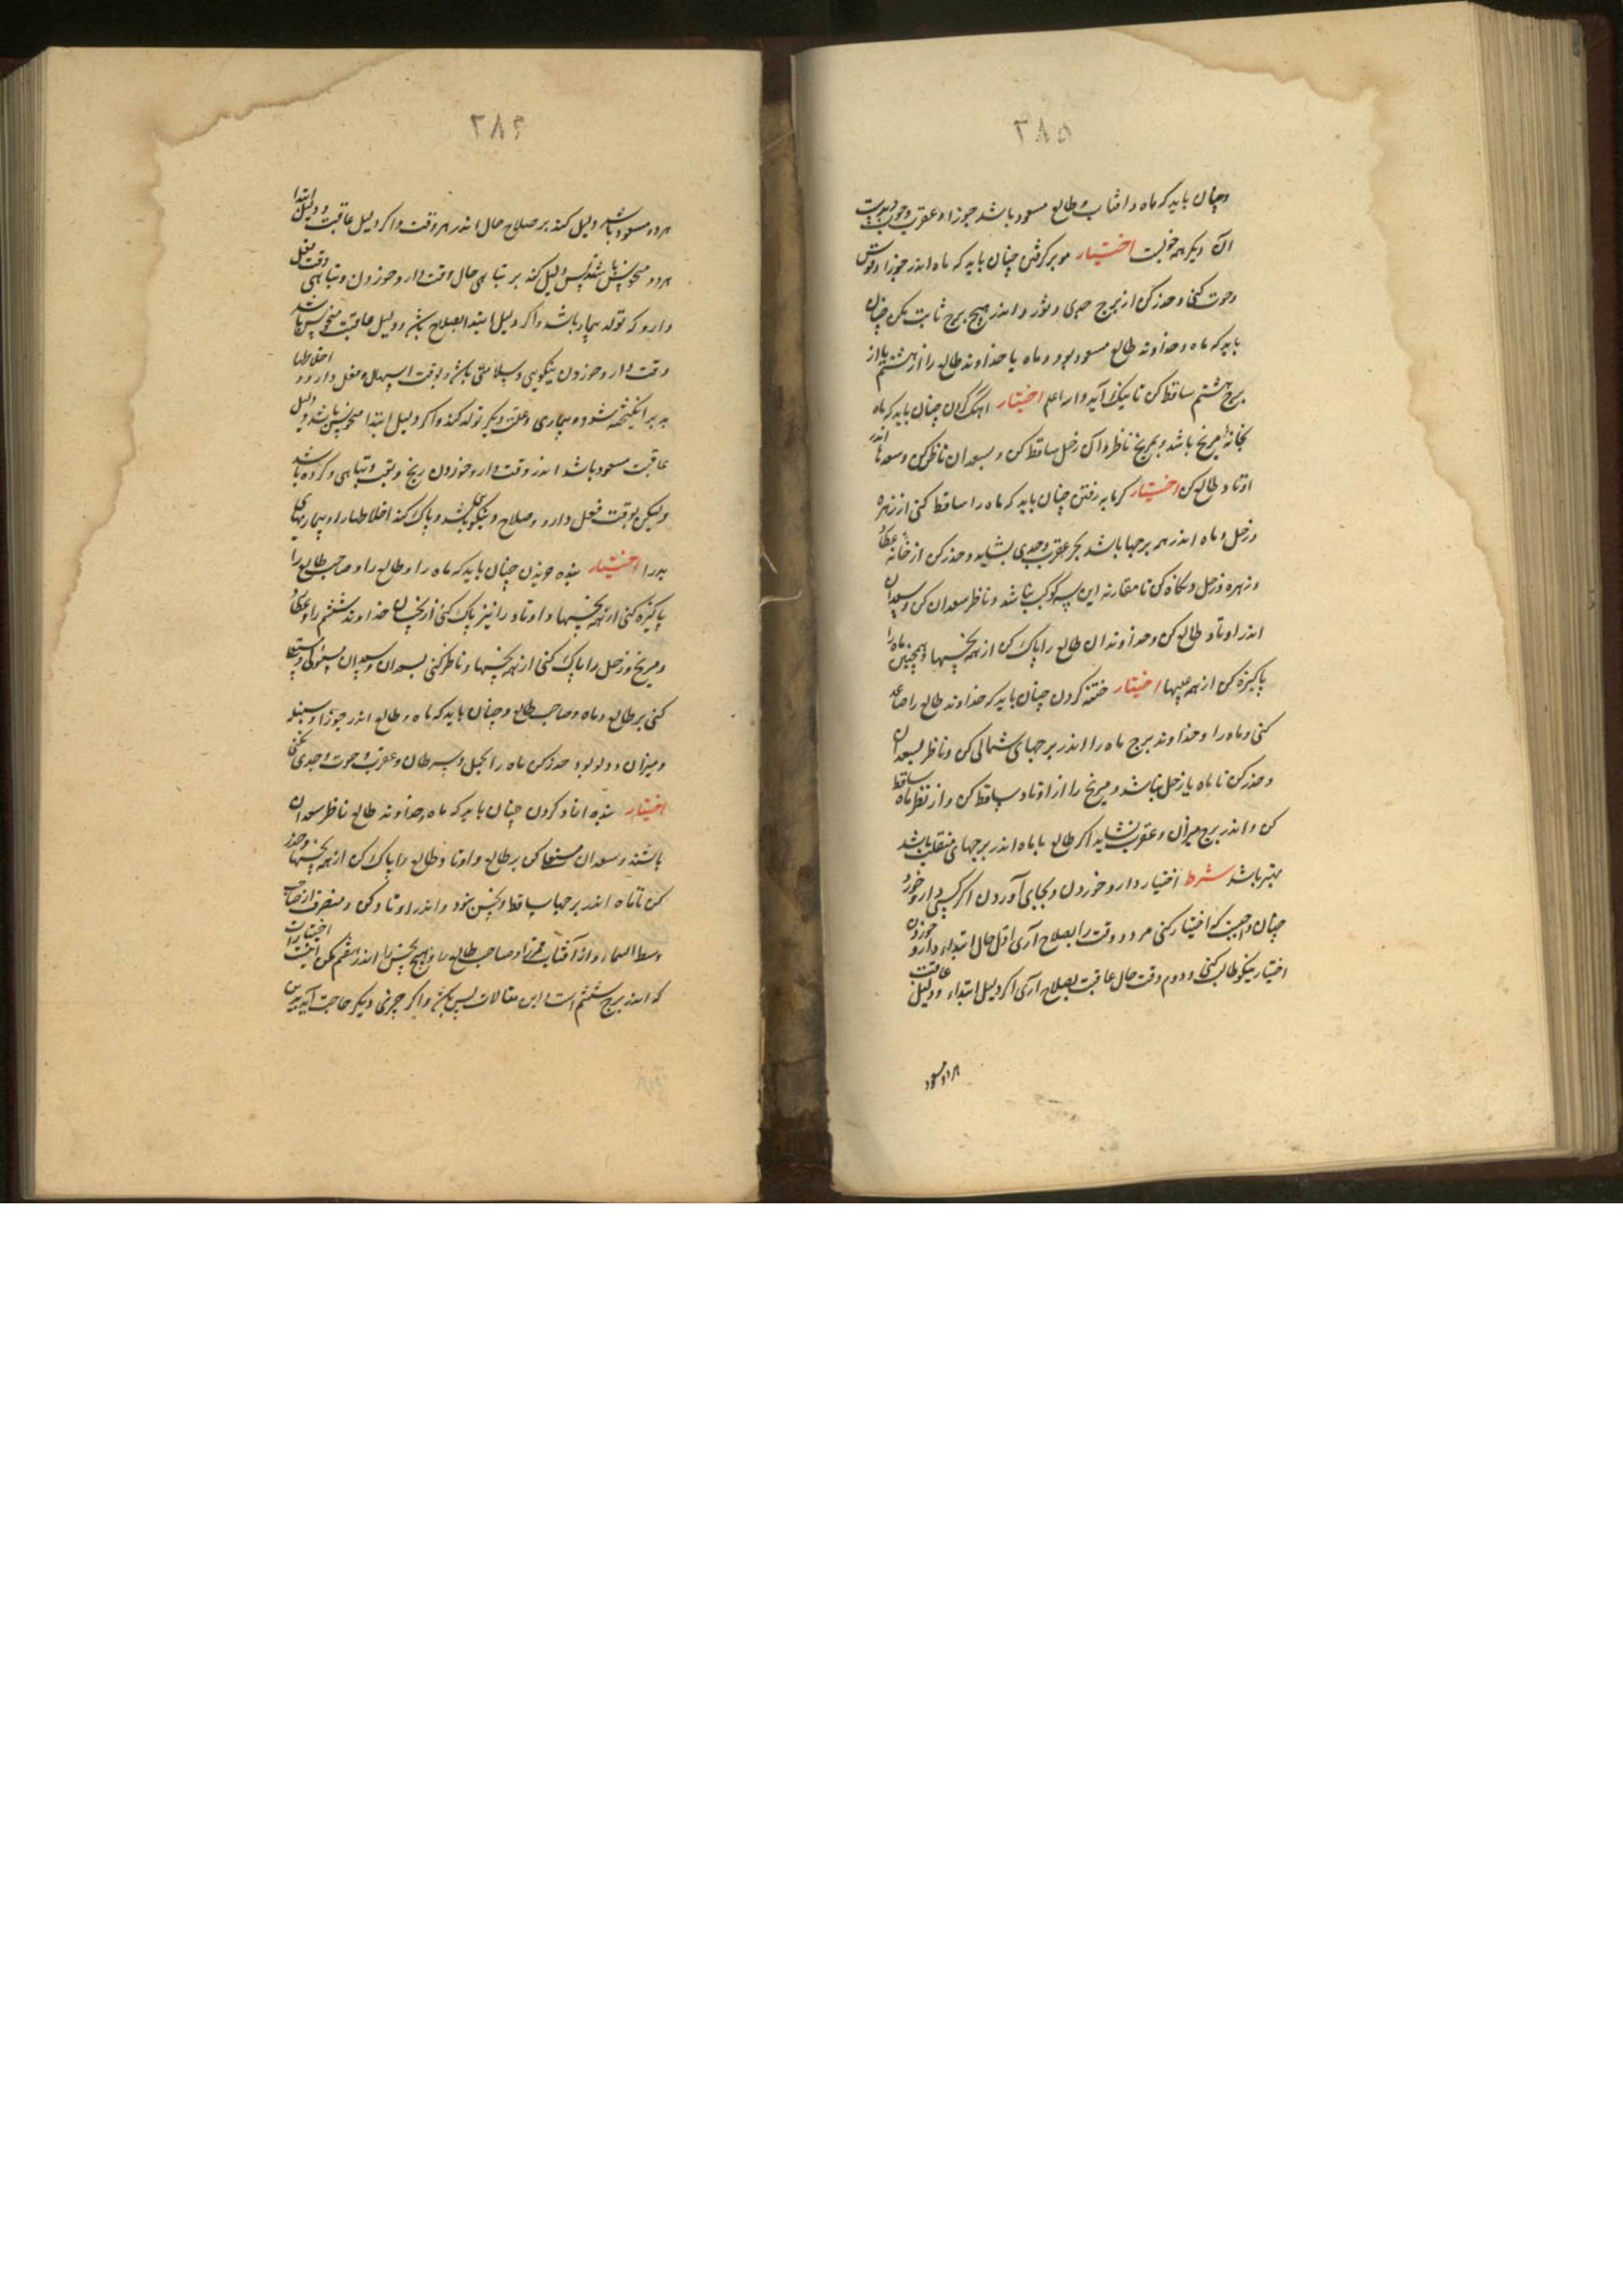 ۳۸۵
وچنان باید که ماه و افتاب و طالع مسعود باشد جوزا و عقرب وحوت
آن دیگر همه خوبست اختیار موی برگرفتن چنان باید که ماه اندر جوزا و قوس
وحوت کنی وحذر کن از برج جدی و ثور و اندر هیچ برج ثابت مکن چنان
باید که ماه و خداوند طالع مسعود بود و ماه یا خداوند طالع را از هشتم یا از
برج هشتم ساقط کن تا نیک آید والله اعلم اختیار کردن چنان باید که ماه
بخانهٔ مریخ باشد و بمریخ ناظر و آن زحل ساقط کن و بسعدان ناظر کن وسعد اندر
اوتاد طالع کن اختیار گرمابه رفتن چنان باید که ماه را ساقط کنی از زهره
وزحل و ماه اندر همه برجها باشد بجز عقرب وجدی بشاید وحذر کن از خانه عطارد
و زهره و زحل و نگاه کن تا مقارنه این سه کوکب نباشد و ناظر سعدان کن وسعدان
اندر اوتاد طالع کن وخداوندان طالع را پاک کن از همه نحسیها وهمچنین ماه را
پاکیزه کن از همه عیبها اختیار ختنه کردن چنان باید که خداوند طالع را صاعد
کنی و ماه را و خداوند برج ماه را اندر برجهای شمالی کن و ناظر بسعدان
وحذر کن تا ماه با زحل نباشد و مریخ را از اوتاد ساقط کن و از نظر ماه ساقط
کن و اندر برج میزان و عقرب نشاید اگر طالع با ماه اندر برجهای منقلب باشد
بهتر باشد شرط اختیار دارو خوردن و بجای آوردن اگر کسی دارو خورد
چنان واجبست که اختیار کنی هر دو وقت را بصلاح آری اوّل حال ابتداء دارو خوردن
اختیار نیکو طالب کنی و دوم وقت حال عاقبت بصلاح آری اگر دلیل ابتداء و دلیل عاقبت
هر دو مسعود
۳۸۶
هر دو مسعود باشد دلیل کند بر صلاح حال اندر هر دو وقت و اگر دلیل عاقبت و دلیل ابتدا
هر دو منحوس باشند پس دلیل کند بر تباهی حال وقت دارو خوردن و تباهی وقت فعل
دارو که تولد بیمار باشد و اگر دلیل ابتدا بصلاح باشد و دلیل عاقبت منحوس باشد
وقت دارو خوردن نیکویی وسلامتی باشد و بوقت اسهال و فعل دارو اخلاطها
بد برانگیخته شود و بیماری وعلت دیگر تولد کند و اگر دلیل ابتدا منحوس باشد و دلیل
عاقبت مسعود باشد اندر وقت دارو خوردن رنج و تعب و تباهی و کرده باشد
ولیکن بوقت فعل دارو وصلاح و نیکویی باشد و پاک کند اخلاطها را و بیماریهای
بد را اختیار بنده خریدن چنان باید که ماه را و طالع را و صاحب طالع را
پاکیزه کنی از همه نحسیها و اوتاد را نیز پاک کنی از نحسان خداوند ششم را وعطارد
ومریخ و زحل را پاک کنی از همه نحسیها و ناظر کنی بسعدان وسعدان مستولی و مستعلی
کنی بر طالع و ماه و صاحب طالع و چنان باید که ماه و طالع اندر جوزا و سنبله
ومیزان و دلو بود حذر کن ماه را بحمل و سرطان و عقرب و حوت و جدی نکنی
اختیار بنده ازاد کردن چنان باید که ماه و خداوند طالع ناظر سعدان
باشند وسعدان مستعلی کن بر طالع و اوتاد و طالع را پاک کن از همه نحسیها وحذر
کن تا ماه اندر برجها ساقط و نحس نبود و اندر اوتاد کن و منصرف از صاحب
وسط السماء و از آفتاب و صاحب طالع را و هیچ نحس را اندر هفتم مکن اختیارات
که اندر برج ششم است این مقالات بس باشد و اگر چیزی دیگر حاجت آید برین